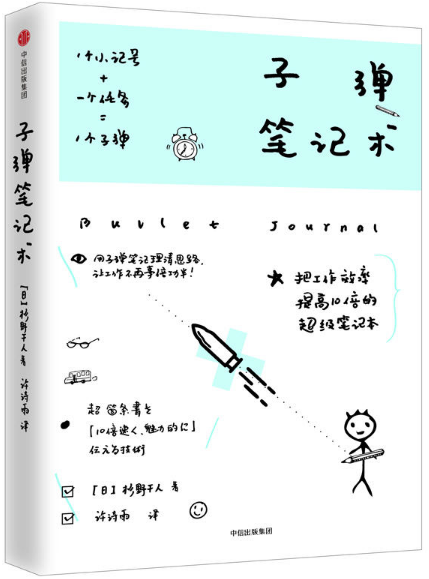 中信出版集团
子弹笔记术
【日】杉野干人 著
许诗雨 译
1个小记号
+
一个任务
=
1个子弹
子弹
笔记术
Bullet Journal
用子弹笔记理清思路,
让工作不再事倍功半!
把工作效率
提高10倍的
超级笔记本
超 箇条書き
「10倍速く、魅力的に」
伝える技術
【日】杉野干人 著
许诗雨 译
中信出版集团